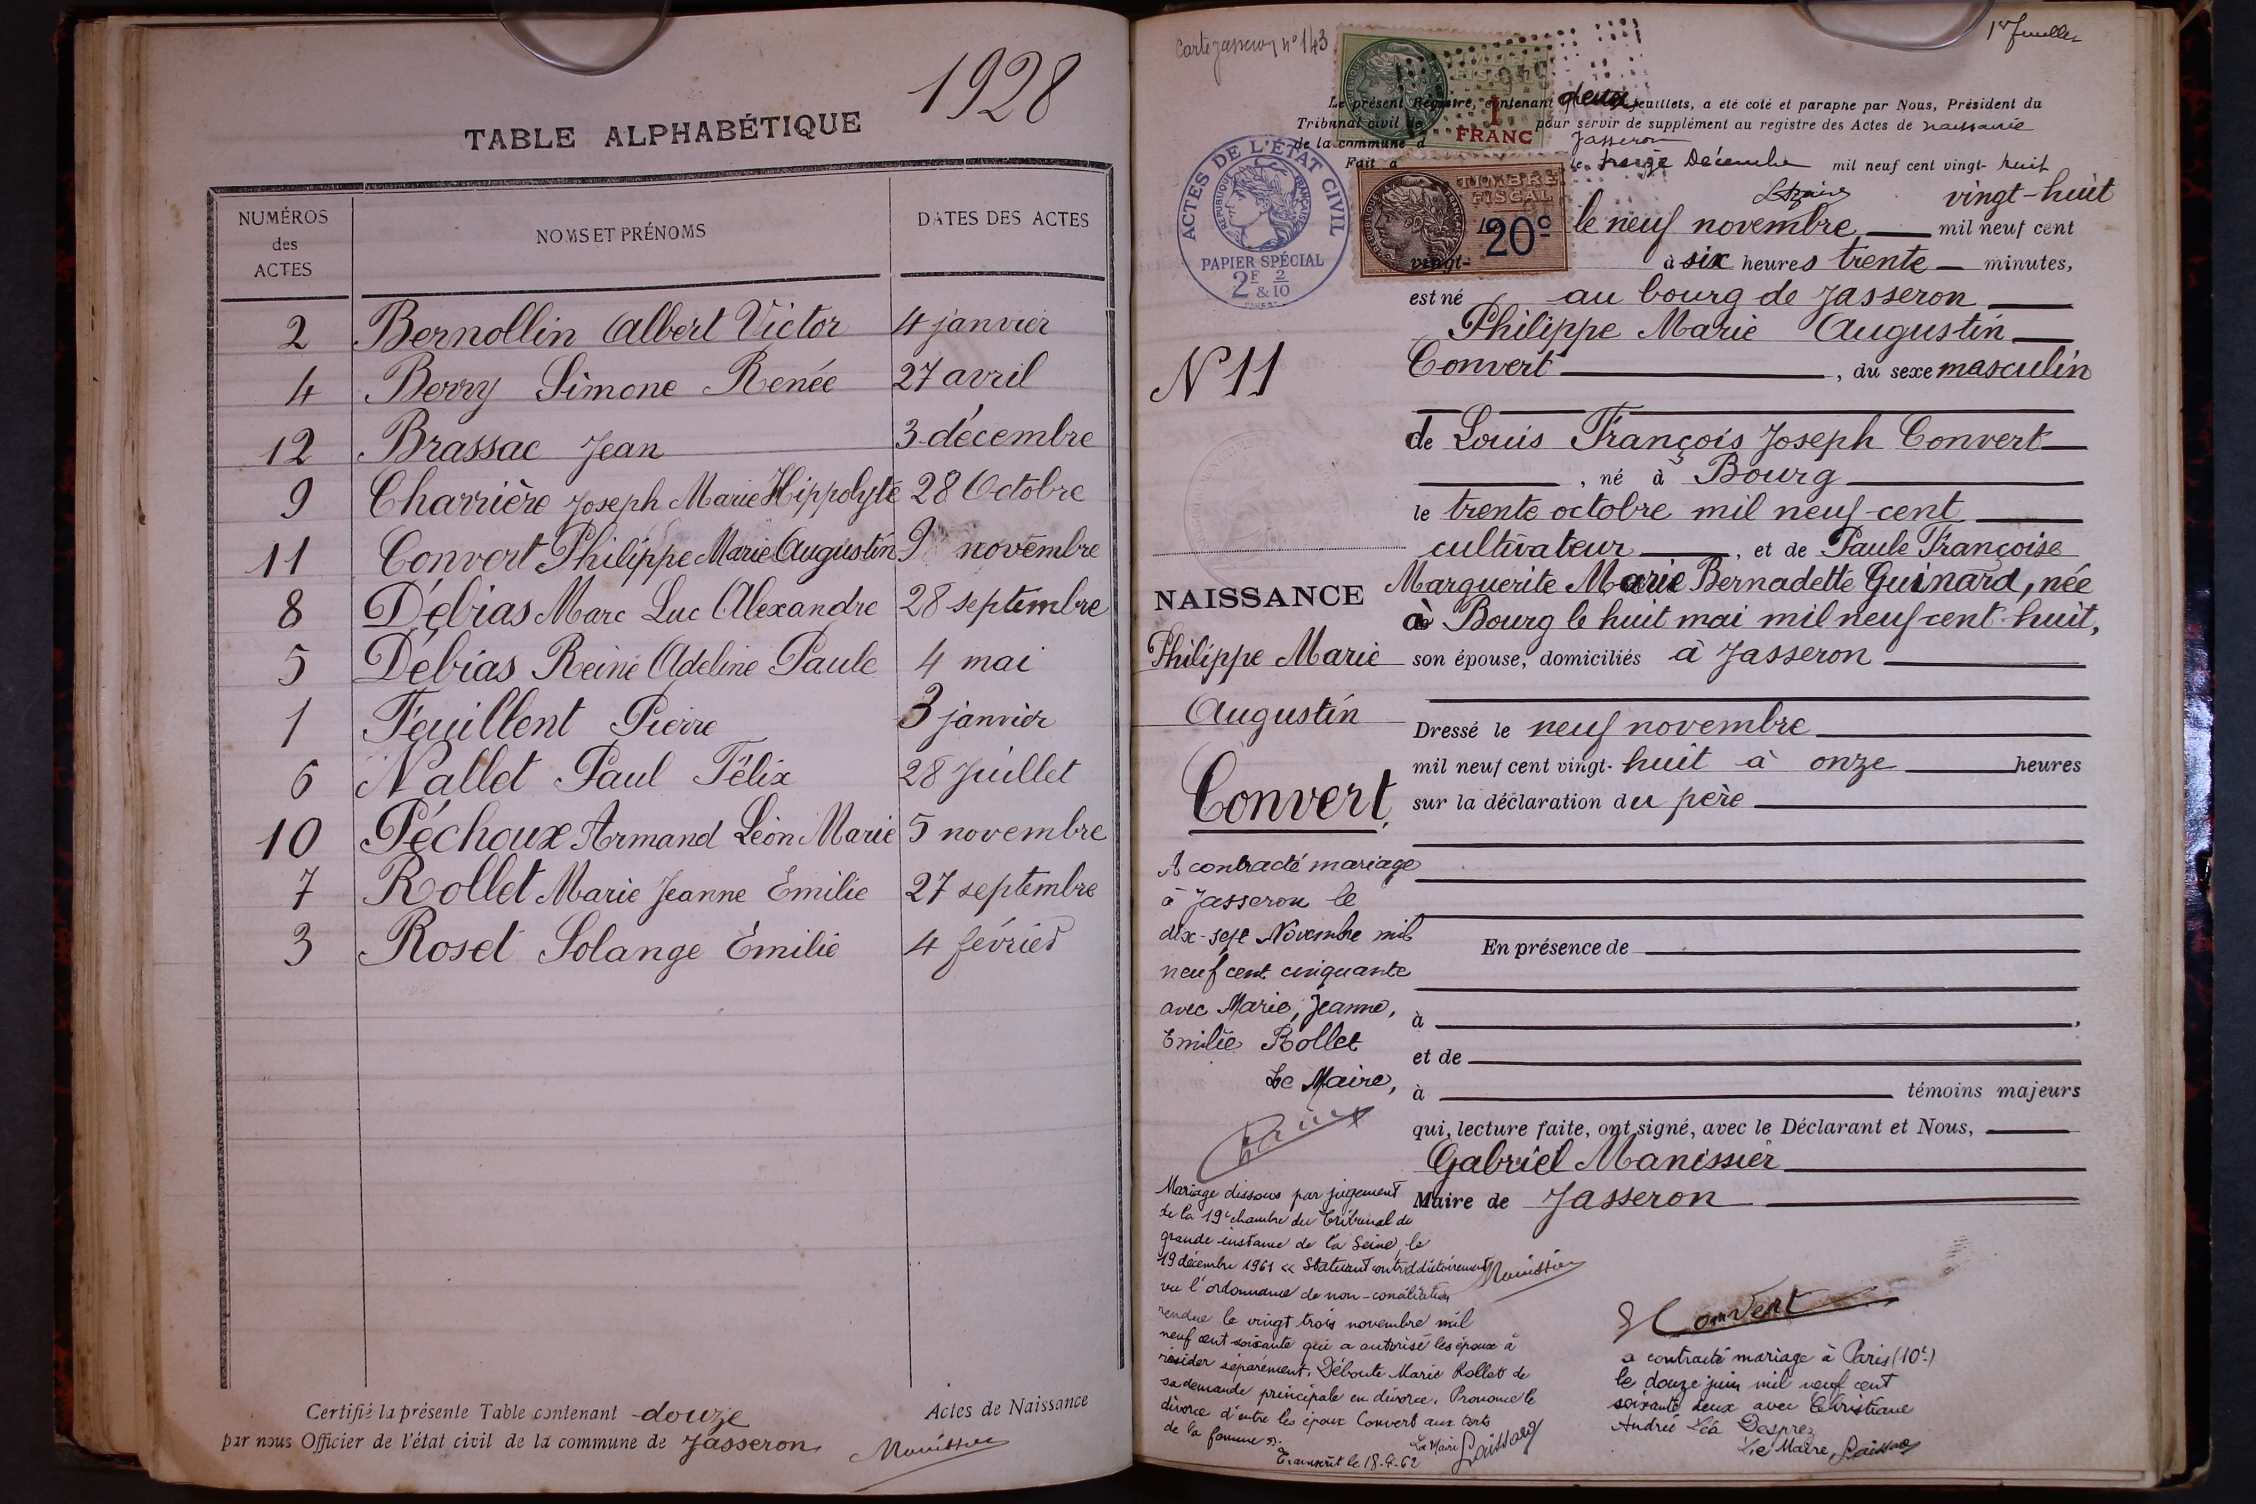 1928
TABLE ALPHABÉTIQUE
NUMÉROS des ACTES
NOMS ET PRÉNOMS
DATES DES ACTES
2 Bernollin Albert Victor 4 janvier
4 Berry Simone Renée 27 avril
12 Brassac Jean 3 décembre
9 Charrière Joseph Marie Hippolyte 28 Octobre
11 Convert Philippe Marie Augustin 9 novembre
8 Débias Marc Luc Alexandre 28 septembre
5 Débias Reine Adeline Paule 4 mai
1 Feuillent Pierre 3 janvier
6 Nallet Paul Félix 28 Juillet
10 Péchoux Armand Léon Marie 5 novembre
7 Rollet Marie Jeanne Emilie 27 septembre
3 Roset Solange Émilie 4 février
Certifié la présente Table contenant douze Actes de Naissance
par nous Officier de l'état civil de la commune de Jasseron
Manissier
Carte Jasseron n° 143
1er feuillet
Le présent Registre, contenant deux feuillets, a été coté et paraphé par Nous, Président du
Tribunal civil de pour servir de supplément au registre des Actes de naissance
de la commune d Jasseron
Fait à le treize Décembre mil neuf cent vingt- huit
1 FRANC
TIMBRE FISCAL
20c
ACTES DE L'ÉTAT CIVIL
RÉPUBLIQUE FRANÇAISE
PAPIER SPÉCIAL
2F & 2/10
vingt-huit
le neuf novembre mil neuf cent
vingt- à six heures trente minutes,
est né au bourg de Jasseron
Philippe Marie Augustin
Convert, du sexe masculin
de Louis François Joseph Convert
, né à Bourg
le trente octobre mil neuf cent
cultivateur, et de Paule Françoise
Marguerite Marie Bernadette Guinard, née
à Bourg le huit mai mil neuf cent huit,
son épouse, domiciliés à Jasseron
Dressé le neuf novembre
mil neuf cent vingt- huit à onze heures
sur la déclaration du père
En présence de
à ,
et de
à témoins majeurs
qui, lecture faite, ont signé, avec le Déclarant et Nous,
Gabriel Manissier
Maire de Jasseron
Manissier
Convert
N 11
NAISSANCE
Philippe Marie
Augustin
Convert.
A contracté mariage
à Jasseron le
dix-sept Novembre mil
neuf cent cinquante
avec Marie, Jeanne,
Emilie Rollet
Le Maire,
Mariage dissous par jugement
de la 19e chambre du Tribunal de
grande instance de la Seine, le
19 décembre 1961 « Statuant contradictoirement
vu l'ordonnance de non-conciliation
rendue le vingt trois novembre mil
neuf cent soixante qui a autorisé les époux à
résider séparément. Déboute Marie Rollet de
sa demande principale en divorce. Prononce le
divorce d'entre les époux Convert aux torts
de la femme ».
Le Maire
Transcrit le 18-4-62
a contracté mariage à Paris (10e)
le douze juin mil neuf cent
soixante deux avec Christiane
Andrée Léa Desprez
Le Maire,